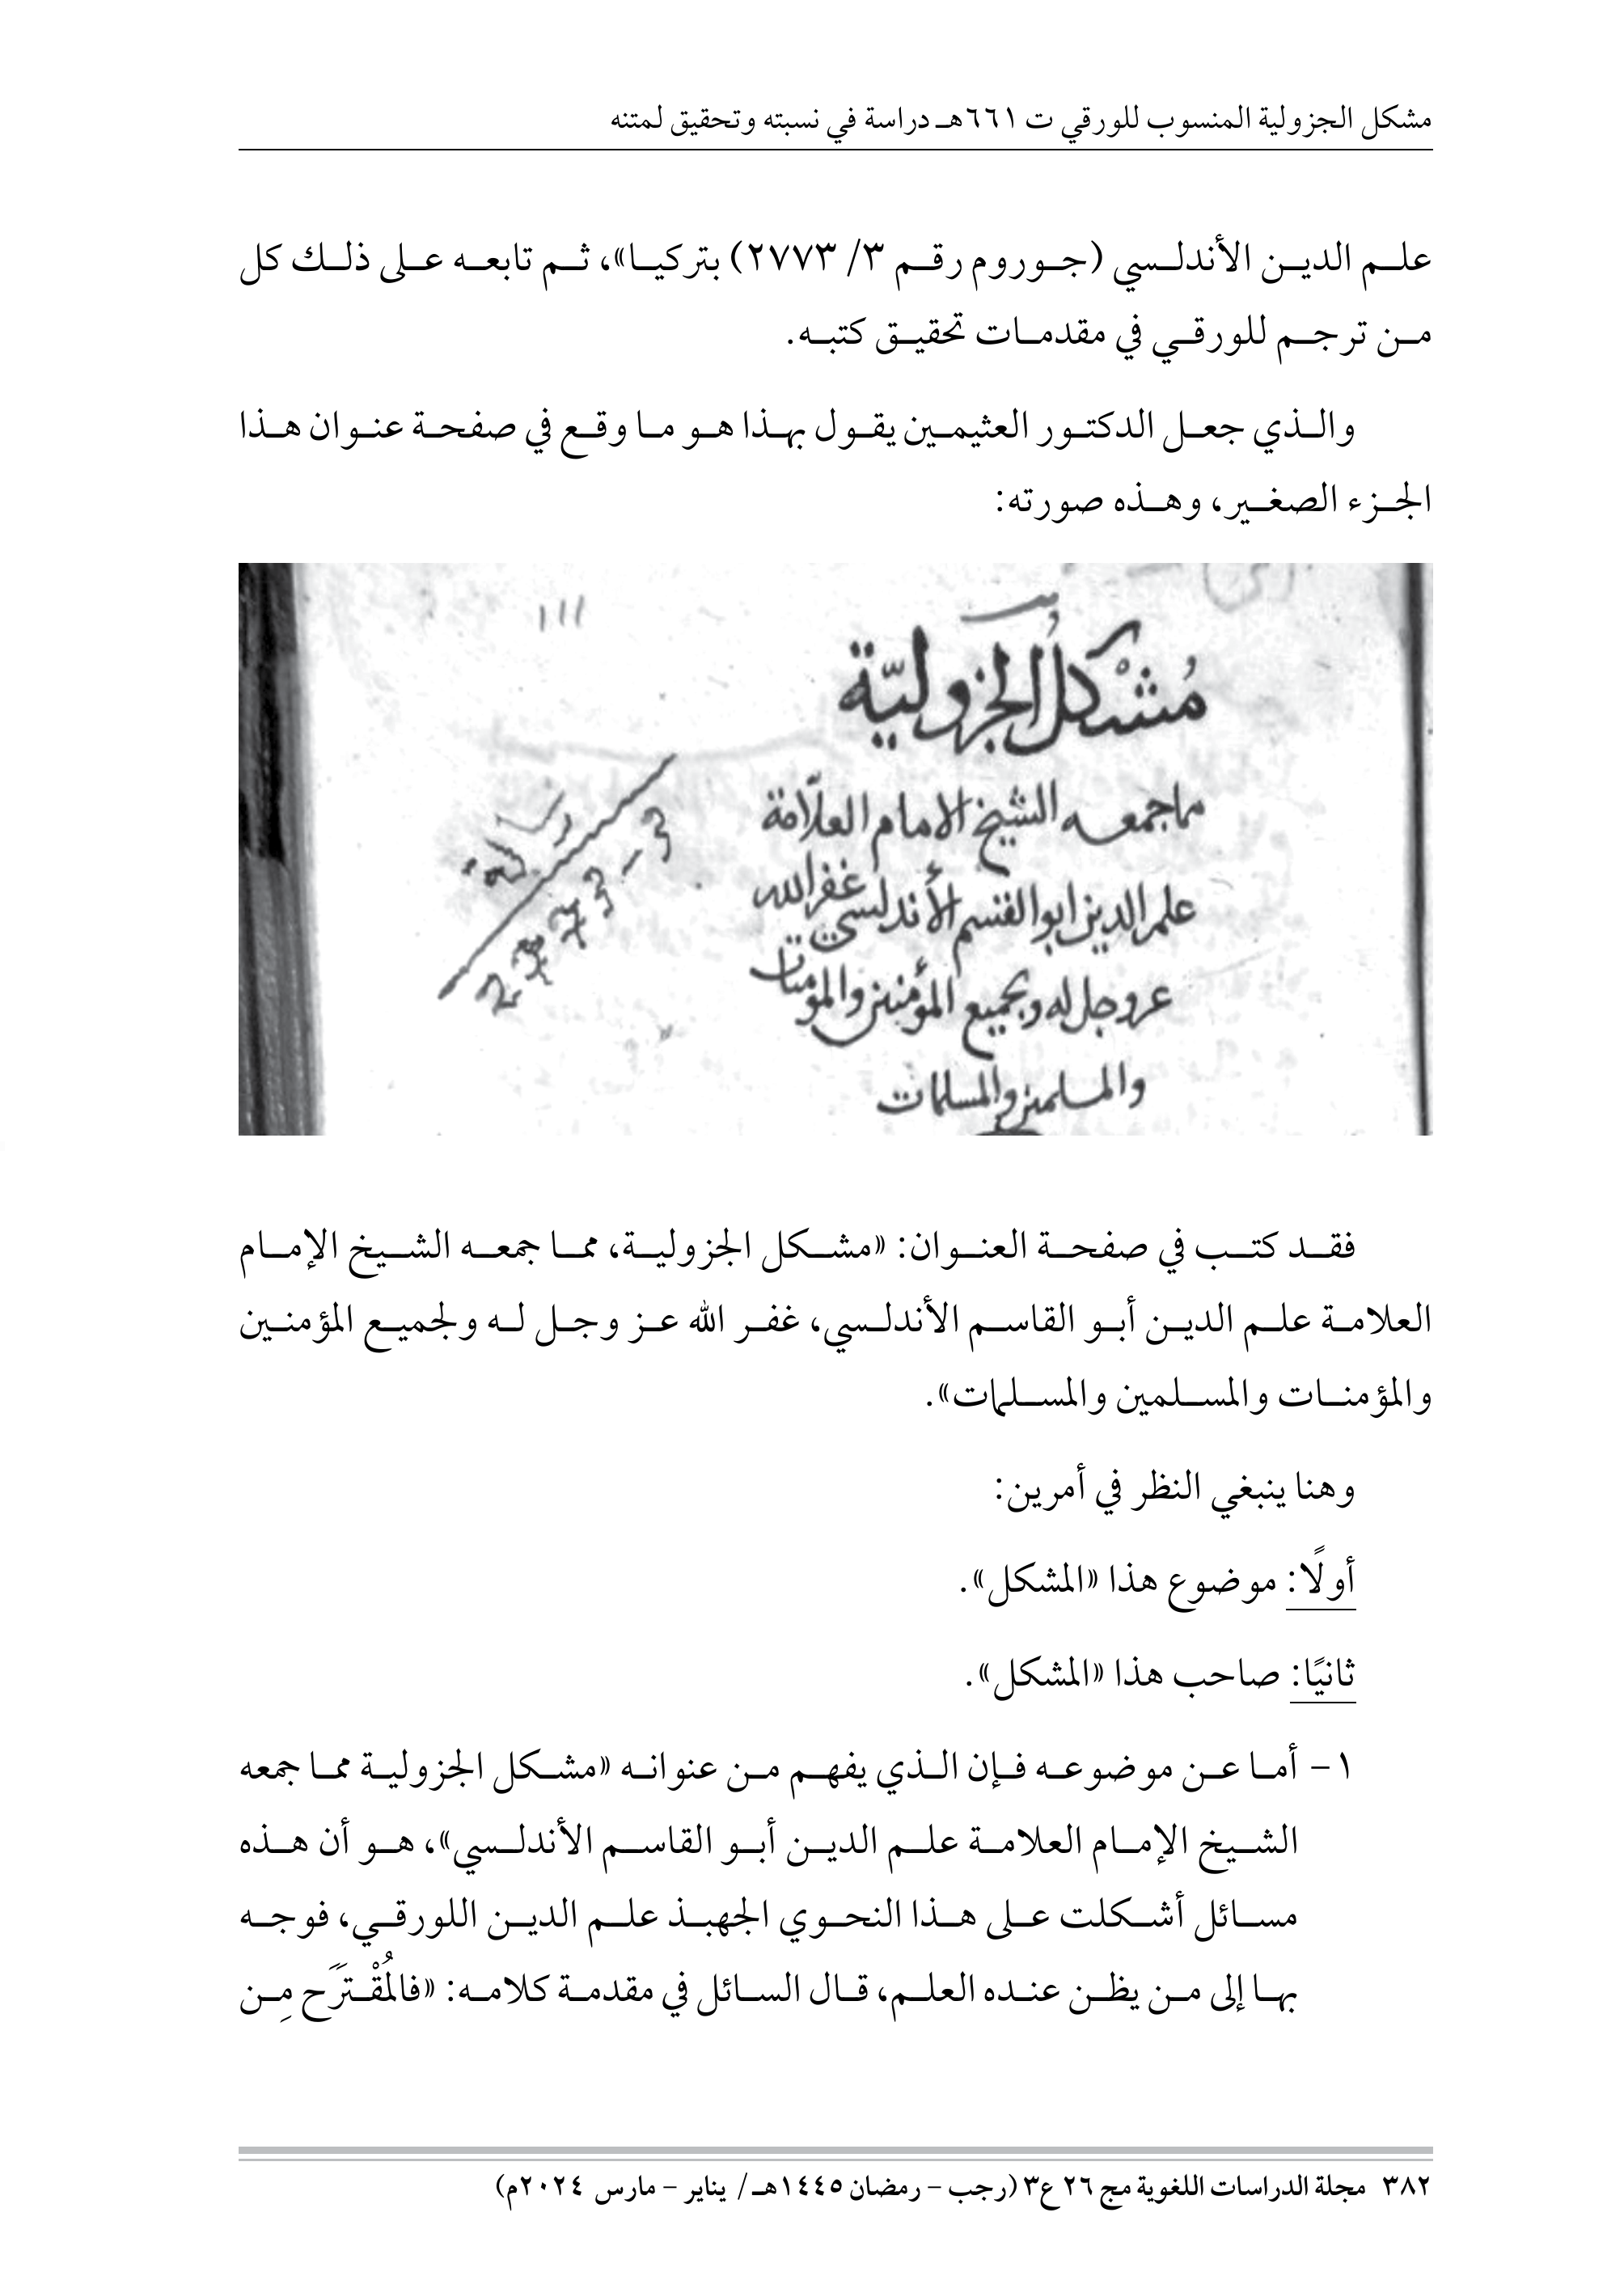 مشكل الجزولية المنسوب للورقي ت ٦٦١هـ دراسة في نسبته وتحقيق لمتنه
علم الدين الأندلسي (جوروم رقم ٣/ ٢٧٧٣) بتركيا»، ثم تابعه على ذلك كل
من ترجم للورقي في مقدمات تحقيق كتبه.
والذي جعل الدكتور العثيمين يقول بهذا هو ما وقع في صفحة عنوان هذا
الجزء الصغير، وهذه صورته:
١١١
مُشْكل الجزوليّة
مما جمعه الشيخ الامام العلّامة
علم الدين ابو القسم الأندلسي غفر الله
عز وجل له ولجميع المؤمنين والمؤمنات
والمسلمين والمسلمات
2773-3
فقد كتب في صفحة العنوان: «مشكل الجزولية، مما جمعه الشيخ الإمام
العلامة علم الدين أبو القاسم الأندلسي، غفر الله عز وجل له ولجميع المؤمنين
والمؤمنات والمسلمين والمسلمات».
وهنا ينبغي النظر في أمرين:
أولًا: موضوع هذا «المشكل».
ثانيًا: صاحب هذا «المشكل».
١- أما عن موضوعه فإن الذي يفهم من عنوانه «مشكل الجزولية مما جمعه
الشيخ الإمام العلامة علم الدين أبو القاسم الأندلسي»، هو أن هذه
مسائل أشكلت على هذا النحوي الجهبذ علم الدين اللورقي، فوجه
بها إلى من يظن عنده العلم، قال السائل في مقدمة كلامه: «فالمُقْتَرَح مِن
٣٨٢ مجلة الدراسات اللغوية مج ٢٦ ع٣ (رجب - رمضان ١٤٤٥هـ / يناير - مارس ٢٠٢٤م)